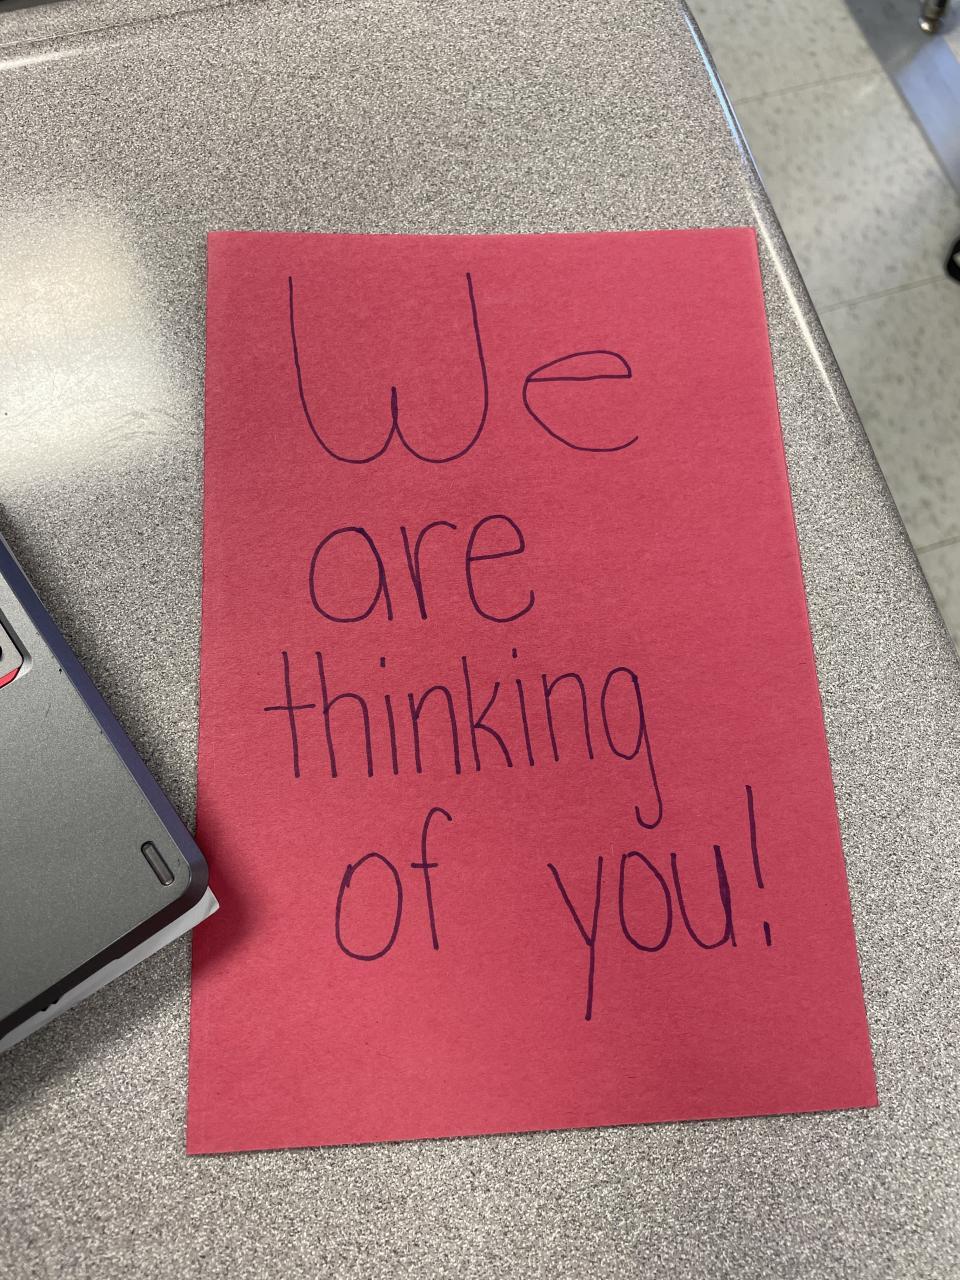 We
are
thinking
of you!